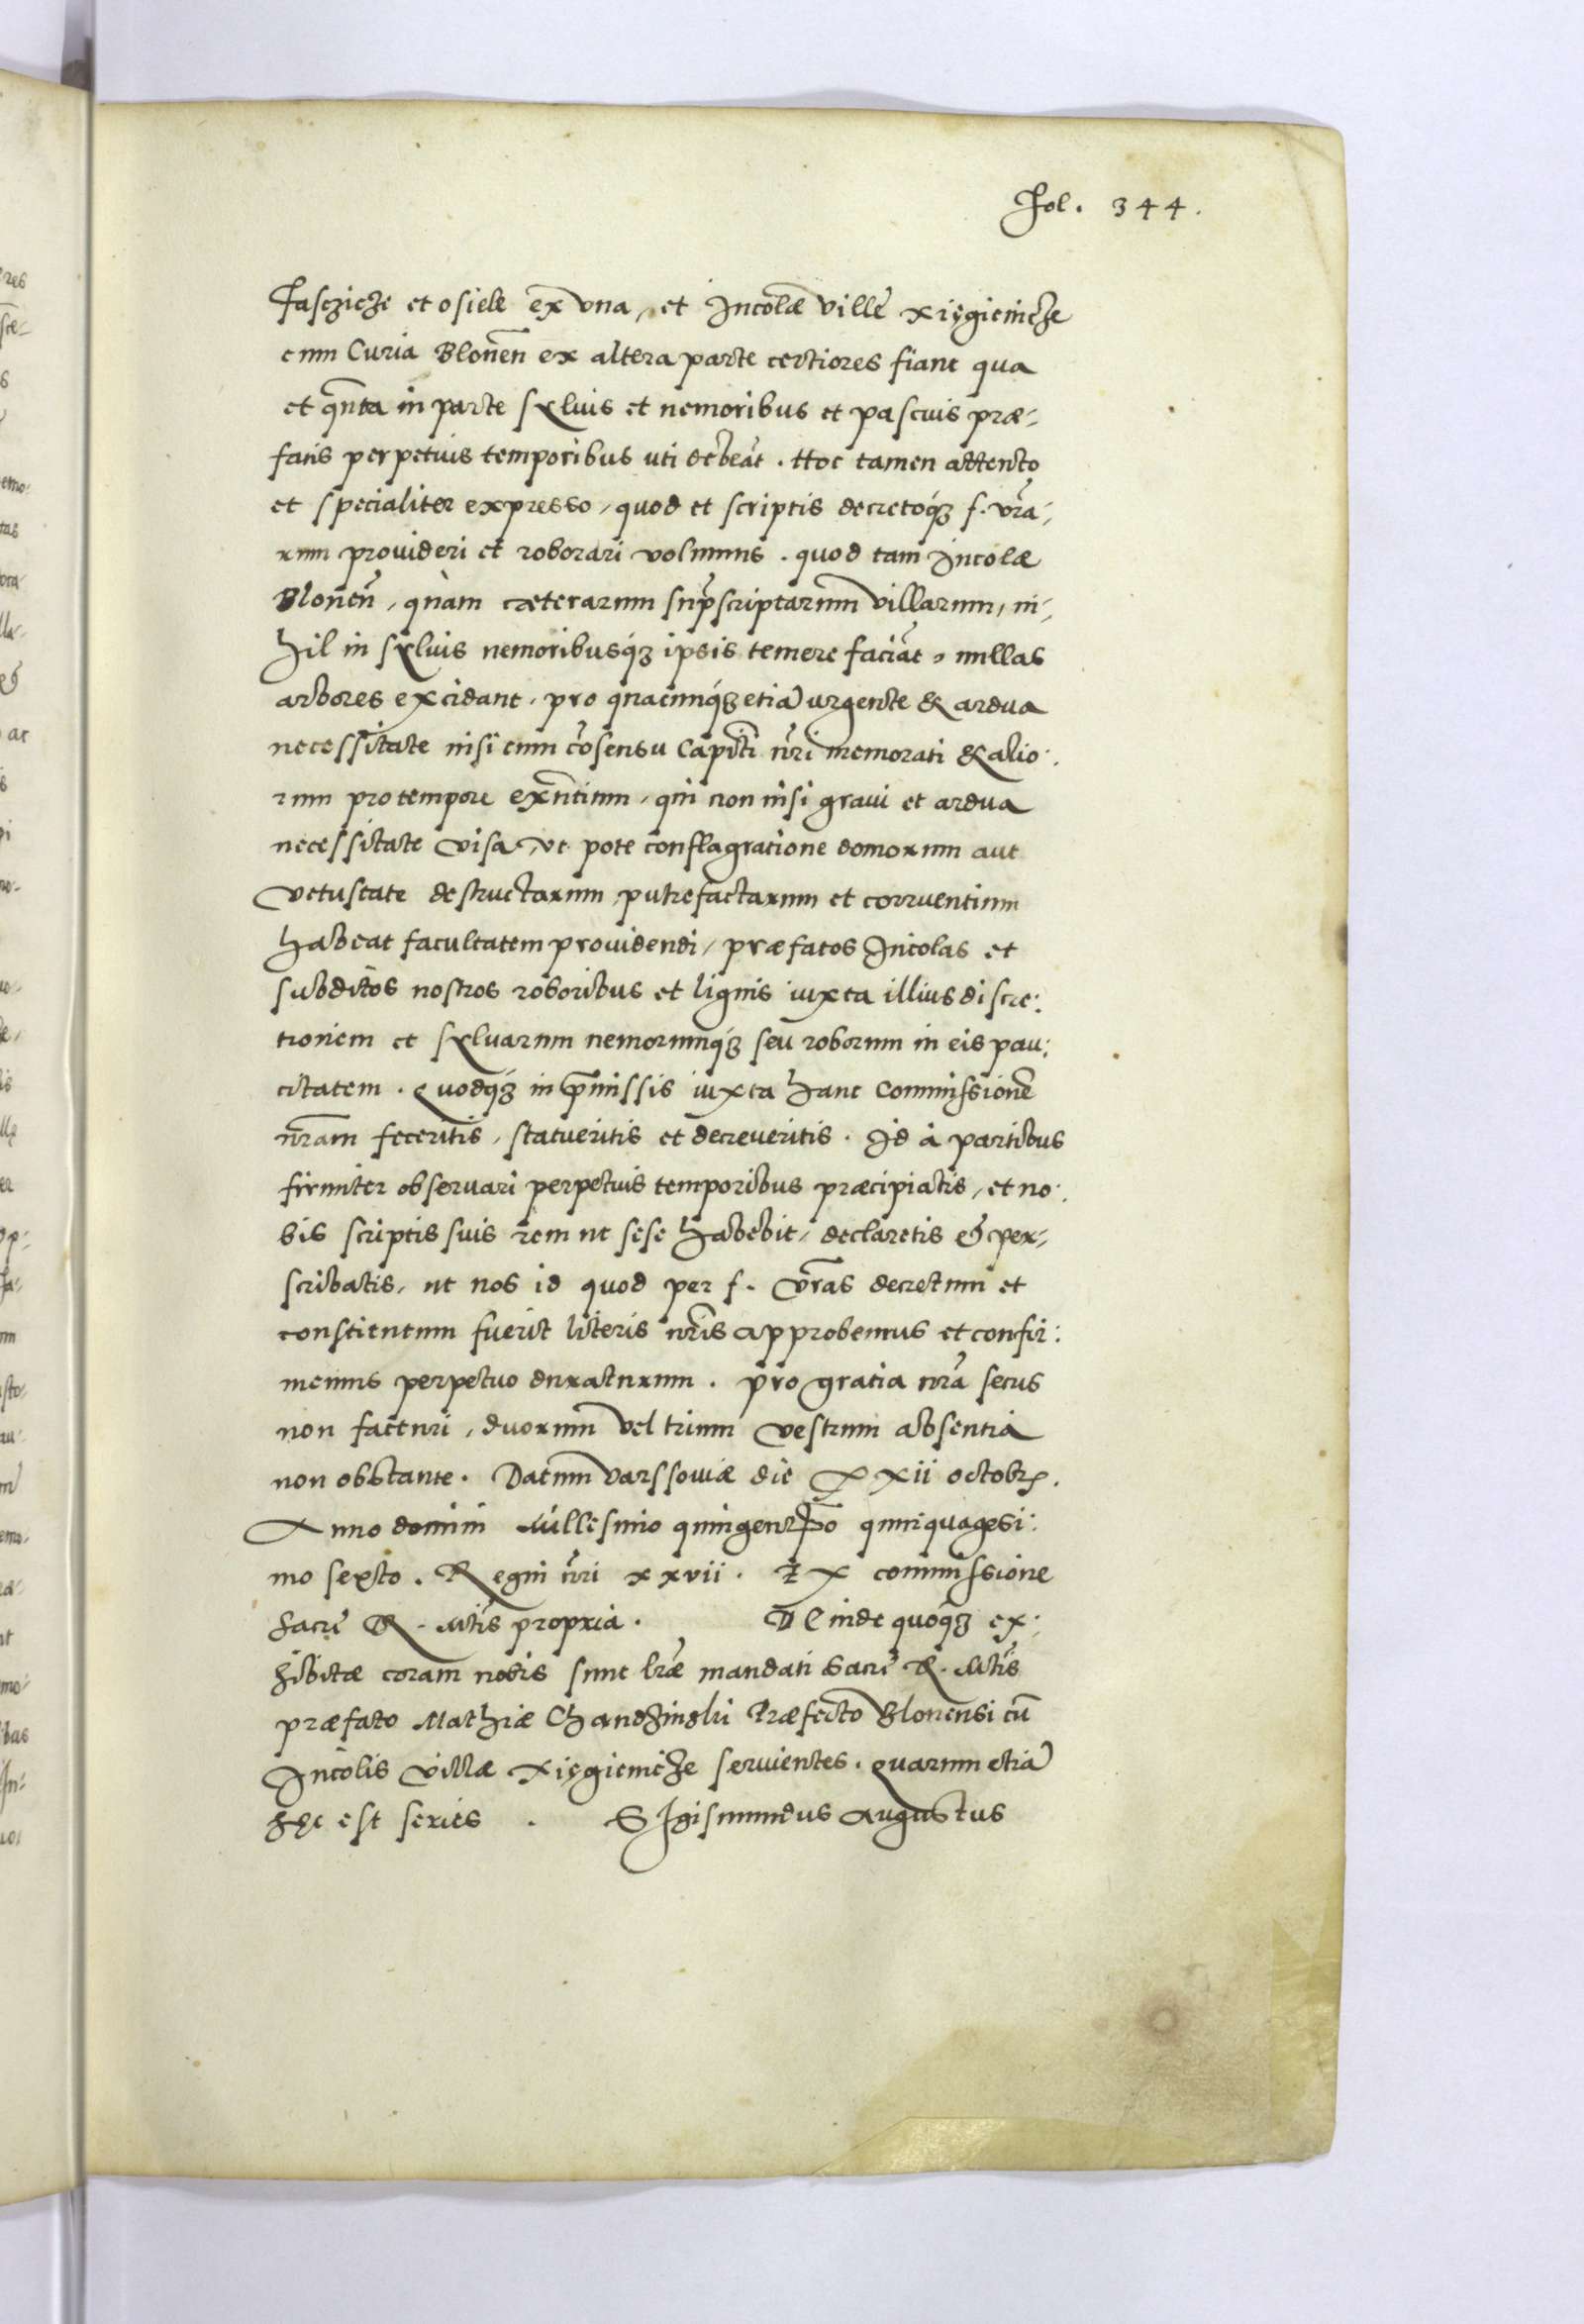 Fol. 344.
Fasczicze et osiele ex una, et Incolæ villę xięgienicze
cum Curia Blonēn ex altera parte certiores fiant qua
et q̃nta in parte sylvis et nemoribus et pascuis præ-
fatis perpetuis temporibus uti debeāt. Hoc tamen attento
et specialiter expresso, quod et scriptis decretoq́ꝫ f. vr̃a-
rum provideri et roborari volumus. quod tam Incolæ
Blonēn, quàm cæterarum sup̃scriptarum villarum, ni-
hil in sylvis nemoribusq́ꝫ ipsis temere faciāt, nullas
arbores excidant, pro quacunq́ꝫ etiā urgente & ardua
necessitate nisi cum cōsensu Capitĩ nr̃i memorati & alio:
rum pro tempore exñtium, qui non nisi gravi et ardua
necessitate visa, ut pote conflagratione domorum aut
vetustate destructarum, putrefactarum et corruentium
habeat facultatem providendi, præfatos Incolas et
subditos nostros roboribus et lignis iuxta illius discre:
tionem et sylvarum nemorumq́ꝫ seu roborum in eis pau:
citatem. Quodq́ꝫ in p̄missis iuxta hanc Commissionē
nr̃am feceritis, statueritis et decreveritis. Id à partibus
firmiter observari perpetuis temporibus præcipiatis, et no:
bis scriptis suis rem ut sese habebit, declaretis & per-
scribatis, ut nos id quod per f. vr̃as decretum et
constitutum fuerit literis nr̃is approbemus et confir:
memus perpetuo duraturum. pro gratia nr̃a secus
non facturi, duorum vel trium vestrum absentia
non obstante. Datum Varssoviæ die XXii octobrꝭ.
Anno domini Millesimo quingentes̃o quinquagesi:
mo sexto. Regni nr̃i xxvii. Ex commissione
Sacrę R. Mtĩs propria. Deinde quoq́ꝫ ex:
hibitæ coram nobis sunt lr̃æ mandati Sacrę R. Mtĩs
præfato Mathiæ Chandzinski Præfecto Blonensi cū
Incolis villæ Xięgienicze servientes. quarum etiā
hęc est series. Sigismundus Augustus